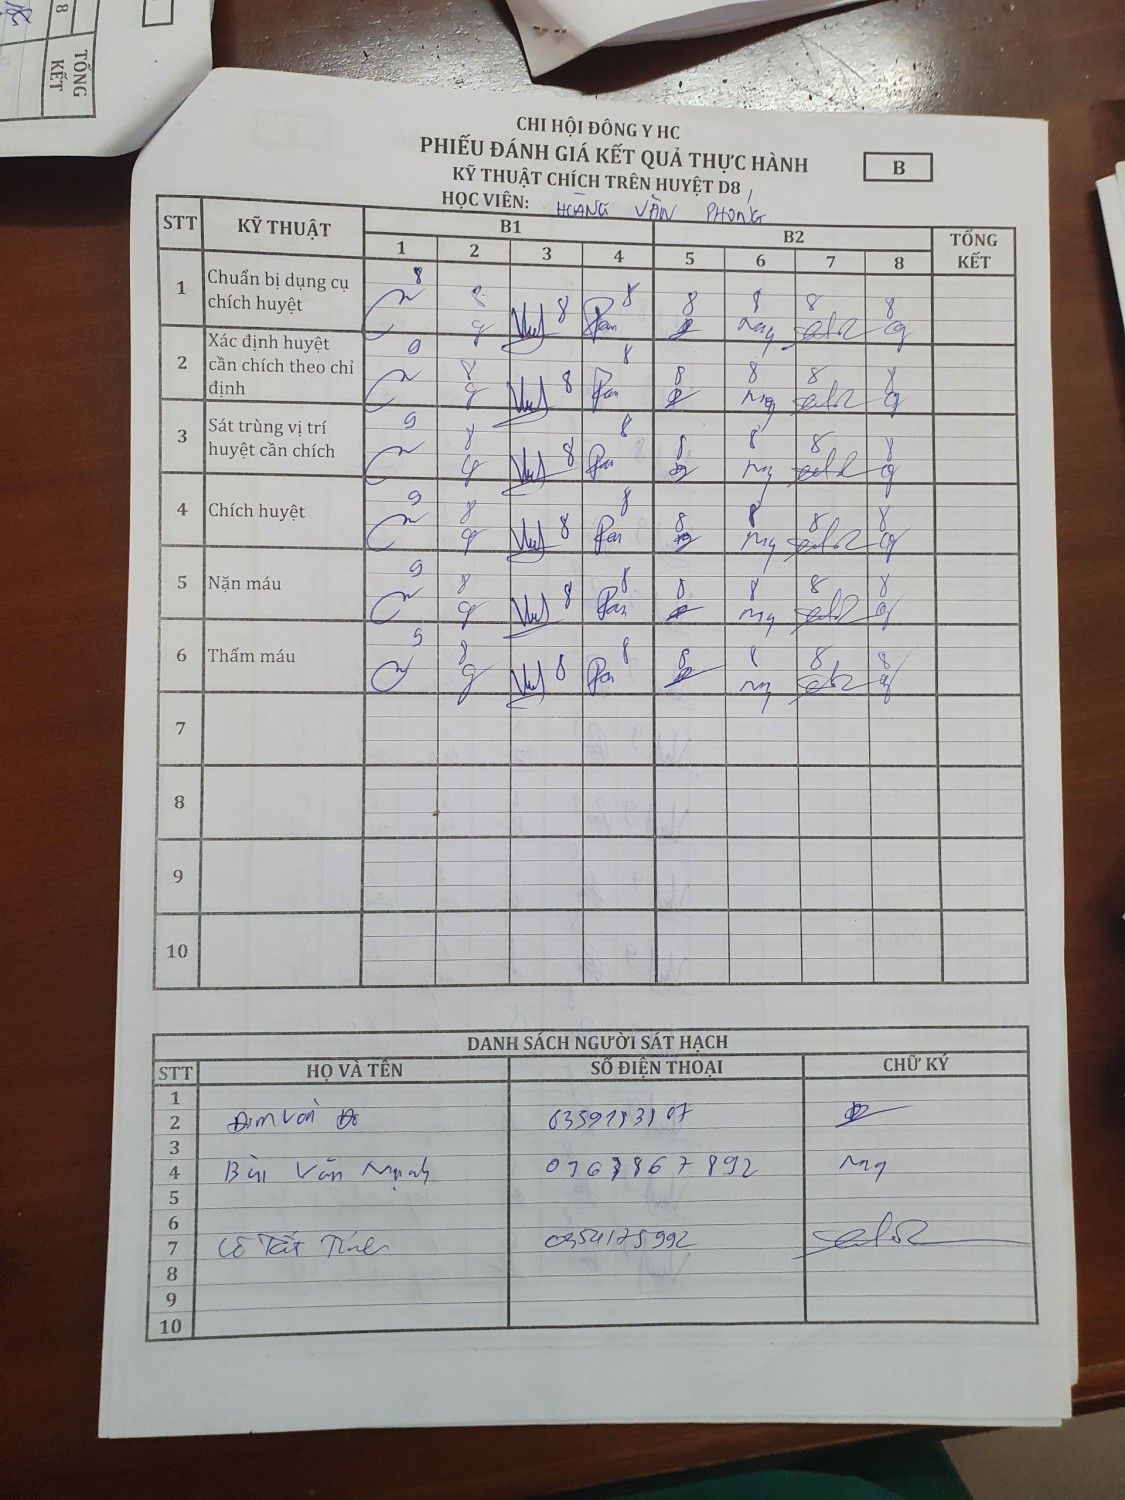 8
TỔNG KẾT
CHI HỘI ĐÔNG Y HC
PHIẾU ĐÁNH GIÁ KẾT QUẢ THỰC HÀNH
B
KỸ THUẬT CHÍCH TRÊN HUYỆT D8
HỌC VIÊN: HOÀNG VĂN PHONG
STT KỸ THUẬT B1 B2 TỔNG KẾT
1 2 3 4 5 6 7 8
1 Chuẩn bị dụng cụ chích huyệt 8 8 8 8 8 8 8 8
2 Xác định huyệt cần chích theo chỉ định 9 8 8 8 8 8 8 8
3 Sát trùng vị trí huyệt cần chích 9 8 8 8 8 8 8 8
4 Chích huyệt 9 8 8 8 8 8 8 8
5 Nặn máu 9 8 8 8 8 8 8 8
6 Thấm máu 9 8 8 8 8 8 8 8
7
8
9
10
DANH SÁCH NGƯỜI SÁT HẠCH
STT HỌ VÀ TÊN SỐ ĐIỆN THOẠI CHỮ KÝ
1
2
3
4 Bùi Văn Mạnh
5
6
7 Lê Tất Tính 0354175992
8
9
10